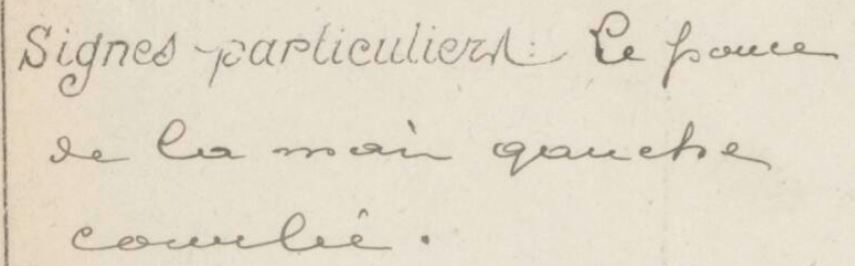 Signes particuliers : Le pouce
de la main gauche
courbé.